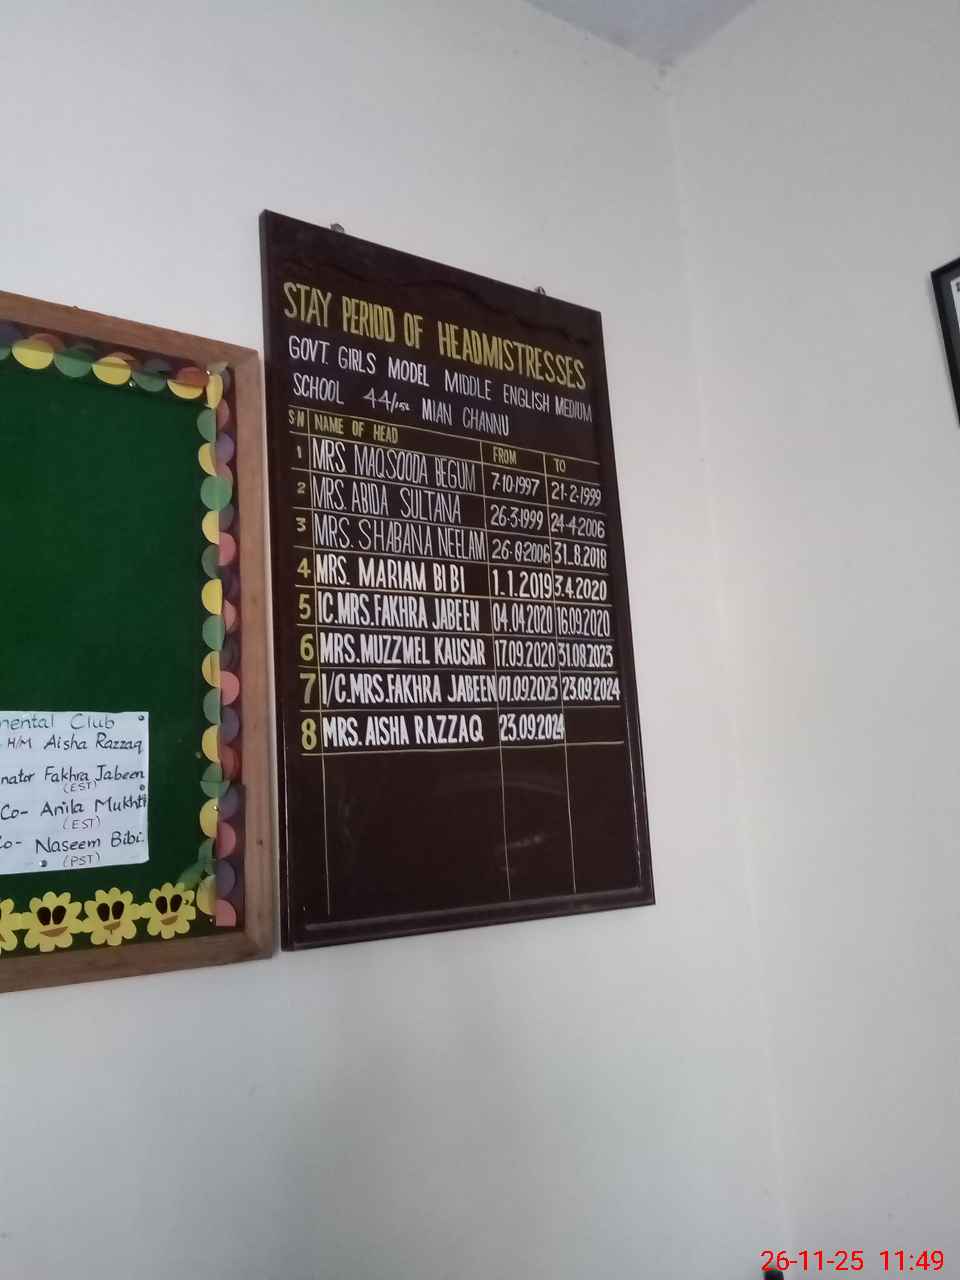 STAY PERIOD OF HEADMISTRESSES
GOVT GIRLS MODEL MIDDLE ENGLISH MEDIUM
SCHOOL 44/15L MIAN CHANNU
S N NAME OF HEAD FROM TO
1 MRS MAQSOODA BEGUM 7-10-1997 21-2-1999
2 MRS. ABIDA SULTANA 26-3-1999 24-4-2006
3 MRS. SHABANA NEELAM 26-8-2006 31_8.2018
4 MRS. MARIAM BIBI 1.1.2019 3.4.2020
5 IC.MRS.FAKHRA JABEEN 04.04.2020 16.09.2020
6 MRS.MUZZMEL KAUSAR 17.09.2020 31.08.2023
7 I/C.MRS.FAKHRA JABEEN 01.09.2023 23.09.2024
8 MRS. AISHA RAZZAQ 23.09.2024
mental Club
H/M Aisha Razzaq
nator Fakhra Jabeen
(EST)
Co- Anila Mukhti
(EST)
Co- Naseem Bibi.
(PST)
26-11-25 11:49